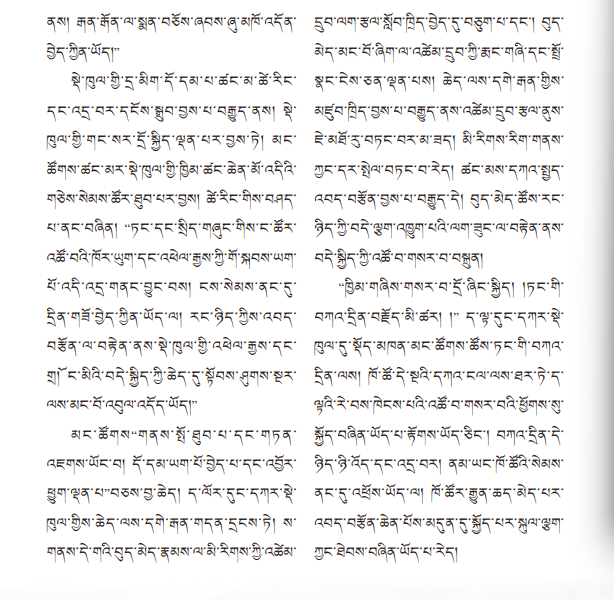 ནས། རྒན་རྒོན་ལ་སྨན་བཅོས་ཞབས་ཞུ་མཁོ་འདོན་
བྱེད་ཀྱིན་ཡོད།”
སྡེ་ཁུལ་གྱི་དྲ་མིག་དོ་དམ་པ་ཚང་མ་ཚེ་རིང་
དང་འདྲ་བར་དངོས་སྒྲུབ་བྱས་པ་བརྒྱུད་ནས། སྡེ་
ཁུལ་གྱི་གང་སར་དྲོ་སྐྱིད་ལྡན་པར་བྱས་ཏེ། མང་
ཚོགས་ཚང་མར་སྡེ་ཁུལ་གྱི་ཁྱིམ་ཚང་ཆེན་མོ་འདིའི་
གཅེས་སེམས་ཚོར་ཐུབ་པར་བྱས། ཚེ་རིང་གིས་བཤད་
པ་ནང་བཞིན། “ཏང་དང་སྲིད་གཞུང་གིས་ང་ཚོར་
འཚོ་བའི་ཁོར་ཡུག་དང་འཕེལ་རྒྱས་ཀྱི་གོ་སྐབས་ཡག་
པོ་འདི་འདྲ་གནང་བྱུང་བས། ངས་སེམས་ནང་དུ་
དྲིན་གཟོ་བྱེད་ཀྱིན་ཡོད་ལ། རང་ཉིད་ཀྱིས་འབད་
བརྩོན་ལ་བརྟེན་ནས་སྡེ་ཁུལ་གྱི་འཕེལ་རྒྱས་དང་
གྲོང་མིའི་བདེ་སྐྱིད་ཀྱི་ཆེད་དུ་སྟོབས་ཤུགས་སྔར་
ལས་མང་བོ་འབུལ་འདོད་ཡོད།”
མང་ཚོགས“གནས་སྤོ་ཐུབ་པ་དང་གཏན་
འཇགས་ཡོང་བ། དོ་དམ་ཡག་པོ་བྱེད་པ་དང་འབྱོར་
ཕྱུག་ལྡན་པ”བཅས་བྱ་ཆེད། ད་ལོར་དུང་དཀར་སྡེ་
ཁུལ་གྱིས་ཆེད་ལས་དགེ་རྒན་གདན་དྲངས་ཏེ། ས་
གནས་དེ་གའི་བུད་མེད་རྣམས་ལ་མི་རིགས་ཀྱི་འཚེམ་
དྲུབ་ལག་རྩལ་སློབ་ཁྲིད་བྱེད་དུ་བཅུག་པ་དང་། བུད་
མེད་མང་བོ་ཞིག་ལ་འཚེམ་དྲུབ་ཀྱི་རྨང་གཞི་དང་སྤྲོ་
སྣང་ངེས་ཅན་ལྡན་པས། ཆེད་ལས་དགེ་རྒན་གྱིས་
མཛུབ་ཁྲིད་བྱས་པ་བརྒྱུད་ནས་འཚེམ་དྲུབ་རྩལ་ནུས་
ཇེ་མཐོ་རུ་བཏང་བར་མ་ཟད། མི་རིགས་རིག་གནས་
ཀྱང་དར་སྤེལ་བཏང་བ་རེད། ཚང་མས་དཀའ་སྤྱད་
འབད་བརྩོན་བྱས་པ་བརྒྱུད་དེ། བུད་མེད་ཚོས་རང་
ཉིད་ཀྱི་བདེ་ལྕུག་འཁྱུག་པའི་ལག་ཟུང་ལ་བརྟེན་ནས་
བདེ་སྐྱིད་ཀྱི་འཚོ་བ་གསར་བ་བསྐྲུན།
“ཁྱིམ་གཞིས་གསར་བ་དྲོ་ཞིང་སྐྱིད། །ཏང་གི་
བཀའ་དྲིན་བརྗོད་མི་ཚར། །” ད་ལྟ་དུང་དཀར་སྡེ་
ཁུལ་དུ་སྡོད་མཁན་མང་ཚོགས་ཚོས་ཏང་གི་བཀའ་
དྲིན་ལས། ཁོ་ཚོ་དེ་སྔའི་དཀའ་ངལ་ལས་ཐར་ཏེ་ད་
ལྟའི་རེ་བས་ཁེངས་པའི་འཚོ་བ་གསར་བའི་ཕྱོགས་སུ་
སྐྱོད་བཞིན་ཡོད་པ་རྟོགས་ཡོད་ཅིང་། བཀའ་དྲིན་དེ་
ཉིད་ཉི་འོད་དང་འདྲ་བར། ནམ་ཡང་ཁོ་ཚོའི་སེམས་
ནང་དུ་འཕྲོས་ཡོད་ལ། ཁོ་ཚོར་རྒྱུན་ཆད་མེད་པར་
འབད་བརྩོན་ཆེན་པོས་མདུན་དུ་སྐྱོད་པར་སྐུལ་ལྕག་
ཀྱང་ཐེབས་བཞིན་ཡོད་པ་རེད།